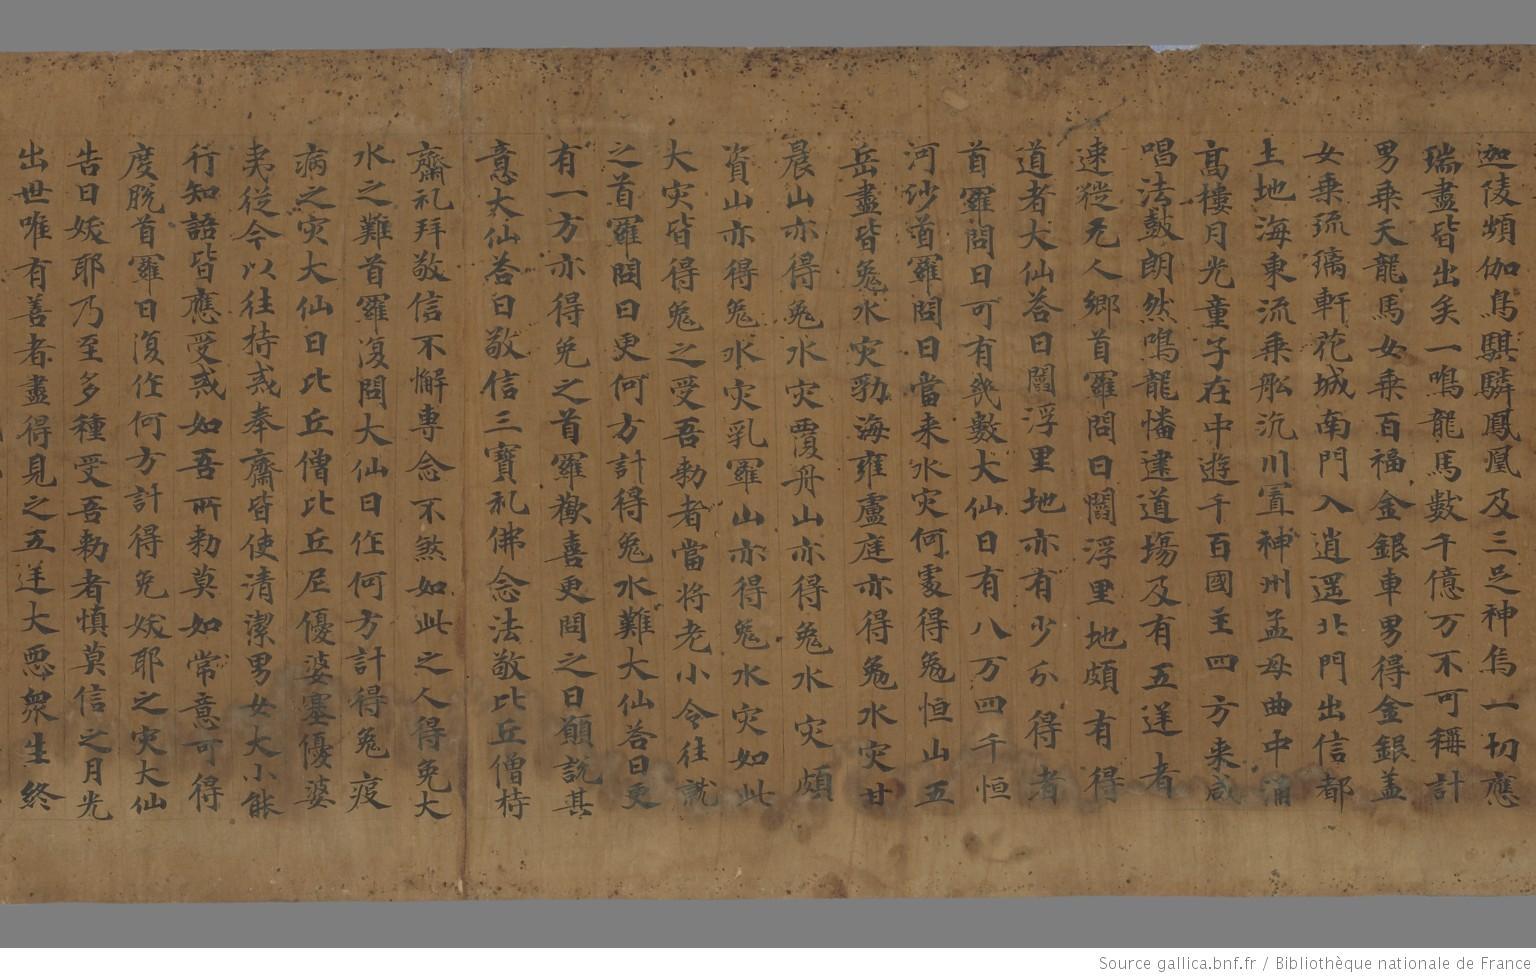 迦陵頻伽鳥騏驎鳳凰及三足神烏一切應
瑞盡皆出矣一鳴龍馬數千億万不可稱計
男乘天龍馬女乘百福金銀車男得金銀蓋
女乘琉璃軒花城南門入逍遥北門出信都
土地海東流乘舩沉川置神州孟母曲中涌
髙樓月光童子在中遊千百國主四方来咸
唱法鼓朗然鳴龍憣建道塲及有五逆者
逮従无人鄉首羅問曰閻浮里地頗有得
道者大仙荅曰閻浮里地亦有少分得者
首羅問曰可有幾數大仙曰有八万四千恒
河沙首羅問曰當来水灾何處得兔恒山五
岳盡皆兔水灾勃海雍盧庭亦得兔水灾甘
晨山亦得兔水灾覆舟山亦得兔水灾頗
資山亦得兔水灾乳羅山亦得兔水灾如此
大灾皆得兔之受吾勑者當将老小令往就
之首羅問曰更何方計得兔水難大仙荅曰更
有一方亦得免之首羅歡喜更問之曰願説其
意大仙荅曰敬信三寳礼佛念法敬比丘僧持
齋礼拜敬信不懈專念不煞如此之人得免大
水之難首羅復問大仙曰作何方計得兔疫
病之灾大仙曰比丘僧比丘尼優婆塞優婆
夷従今以往持戒奉齋皆使清潔男女大小能
行知語皆應受戒如吾所勑莫如常意可得
度脱首羅曰復作何方計得免妖耶之灾大仙
告曰妖耶乃至多種受吾勑者慎莫信之月光
出世唯有善者盡得見之五逆大惡衆生終